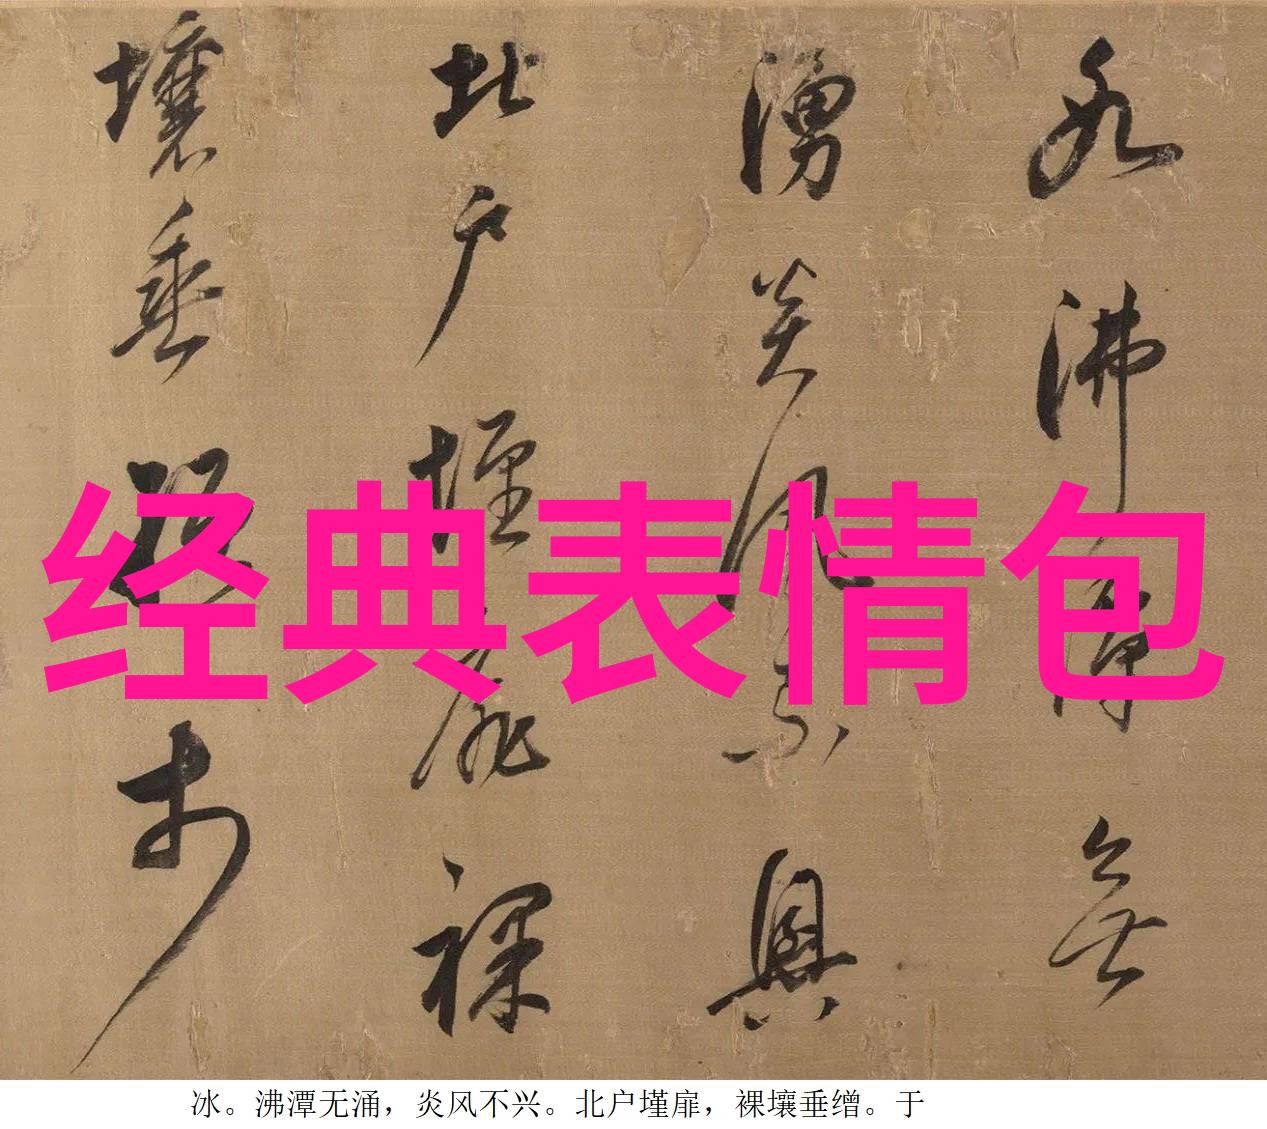 氷沸潭無
湧炎風不興
北户墐扉裸
壤垂繒於
经典表情包
冰。沸潭无涌，炎风不兴。北户墐扉，裸壤垂缯。于